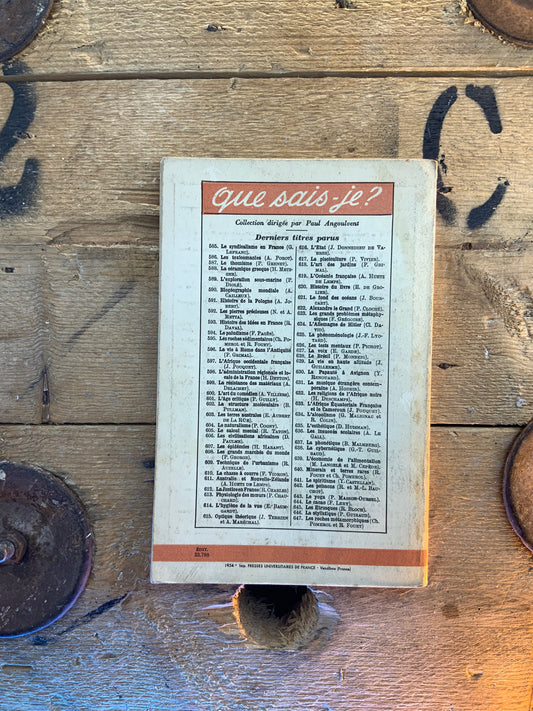 que sais-je?
Collection dirigée par Paul Angoulvent
Derniers titres parus
585. Le syndicalisme en France (G.
LEFRANC).
586. Les toxicomanies (A. POROT).
587. Le thomisme (P. GRENET).
588. La céramique grecque (H. METZ-
GER).
589. L'exploration sous-marine (P.
DIOLÉ).
590. Biogéographie mondiale (A.
CAILLEUX).
591. Histoire de la Pologne (A. JO-
BERT).
592. Les pierres précieuses (N. et A.
METTA).
593. Histoire des idées en France (R.
DAVAL).
594. Le paludisme (F. PAGÈS).
595. Les roches sédimentaires (Ch. PO-
MEROL et R. FOUET).
596. La vie à Rome dans l'Antiquité
(P. GRIMAL).
597. L'Afrique occidentale française
(J. POUQUET).
598. L'administration régionale et lo-
cale de la France (H. DETTON).
599. La résistance des matériaux (A.
DELACHET).
600. L'art du comédien (A. VILLIERS).
601. L'âge critique (P. GUILLY).
602. La structure moléculaire (B.
PULLMAN).
603. Les terres australes (E. AUBERT
DE LA RÜE).
604. Le naturalisme (P. COGNY).
605. Le calcul mental (R. TATON).
606. Les civilisations africaines (D.
PAULME).
607. Les épidémies (H. HARANT).
608. Les grands marchés du monde
(P. GEORGE).
609. Technique de l'urbanisme (R.
AUZELLE).
610. La chasse à courre (F. VIDRON).
611. Australie et Nouvelle-Zélande
(A. HUETZ DE LEMPS).
612. La Justice en France (R. CHARLES)
613. Physiologie des mœurs (P. CHAU-
CHARD).
614. L'hygiène de la vue (E. BAUM-
GARDT).
615. Optique théorique (J. TERRIEN
et A. MARÉCHAL).
616. L'État (J. DONNEDIEU DE VA-
BRES).
617. La pisciculture (P. VIVIER).
618. L'art des jardins (P. GRI-
MAL).
619. L'Océanie française (A. HUETZ
DE LEMPS).
620. Histoire du livre (E. DE GRO-
LIER).
621. Le fond des océans (J. BOUR-
CART).
622. Alexandre le Grand (P. CLOCHÉ).
623. Les grands problèmes métaphy-
siques (F. GRÉGOIRE).
624. L'Allemagne de Hitler (Cl. DA-
VID).
625. La phénoménologie (J.-F. LYO-
TARD).
626. Les tests mentaux (P. PICHOT).
627. La voix (R. GARDE).
628. Le Brésil (P. MONBEIG).
629. La vie en haute altitude (J.
GUILLERME).
630. La Papauté à Avignon (Y.
RENOUARD).
631. La musique étrangère contem-
poraine (A. HODEIR).
632. Les religions de l'Afrique noire
(H. DESCHAMPS).
633. L'Afrique Équatoriale Française
et le Cameroun (J. POUQUET).
634. L'alcoolisme (G. MALIGNAC et
R. COLIN).
635. L'esthétique (D. HUISMAN).
636. Les insectes sociaux (A. LE
GALL).
637. La phonétique (B. MALMBERG).
638. La cybernétique (G.-T. GUIL-
BAUD).
639. L'économie de l'alimentation
(M. LANGHER et M. CÉPÈDE).
640. Minerais et terres rares (R.
FOUET et Ch. POMEROL).
641. Le spiritisme (Y. CASTELLAN).
642. Les poisons (R. et M.-L. BAU-
CHOT).
643. Le yoga (P. MASSON-OURSEL).
644. Le cacao (F. LERY).
645. Les Étrusques (R. BLOCH).
646. La stylistique (P. GUIRAUD).
647. Les roches métamorphiques (Ch.
POMEROL et R. FOUET)
ÉDIT.
23.798
1954 - Imp. PRESSES UNIVERSITAIRES DE FRANCE. - Vendôme (France)